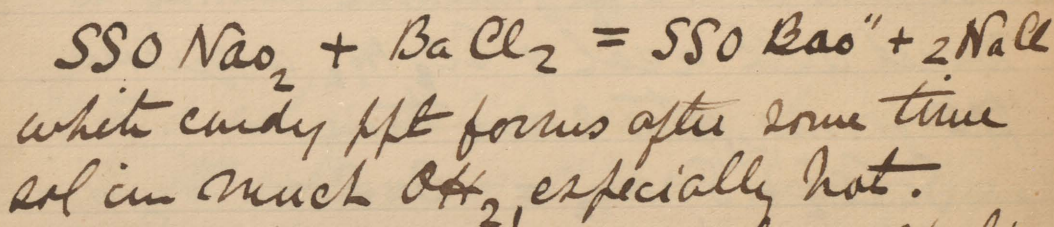 SSO Nao₂ + BaCl₂ = SSO Bao" + 2NaCl
white curdy ppt forms after some time
sol in much OH₂, especially hot.